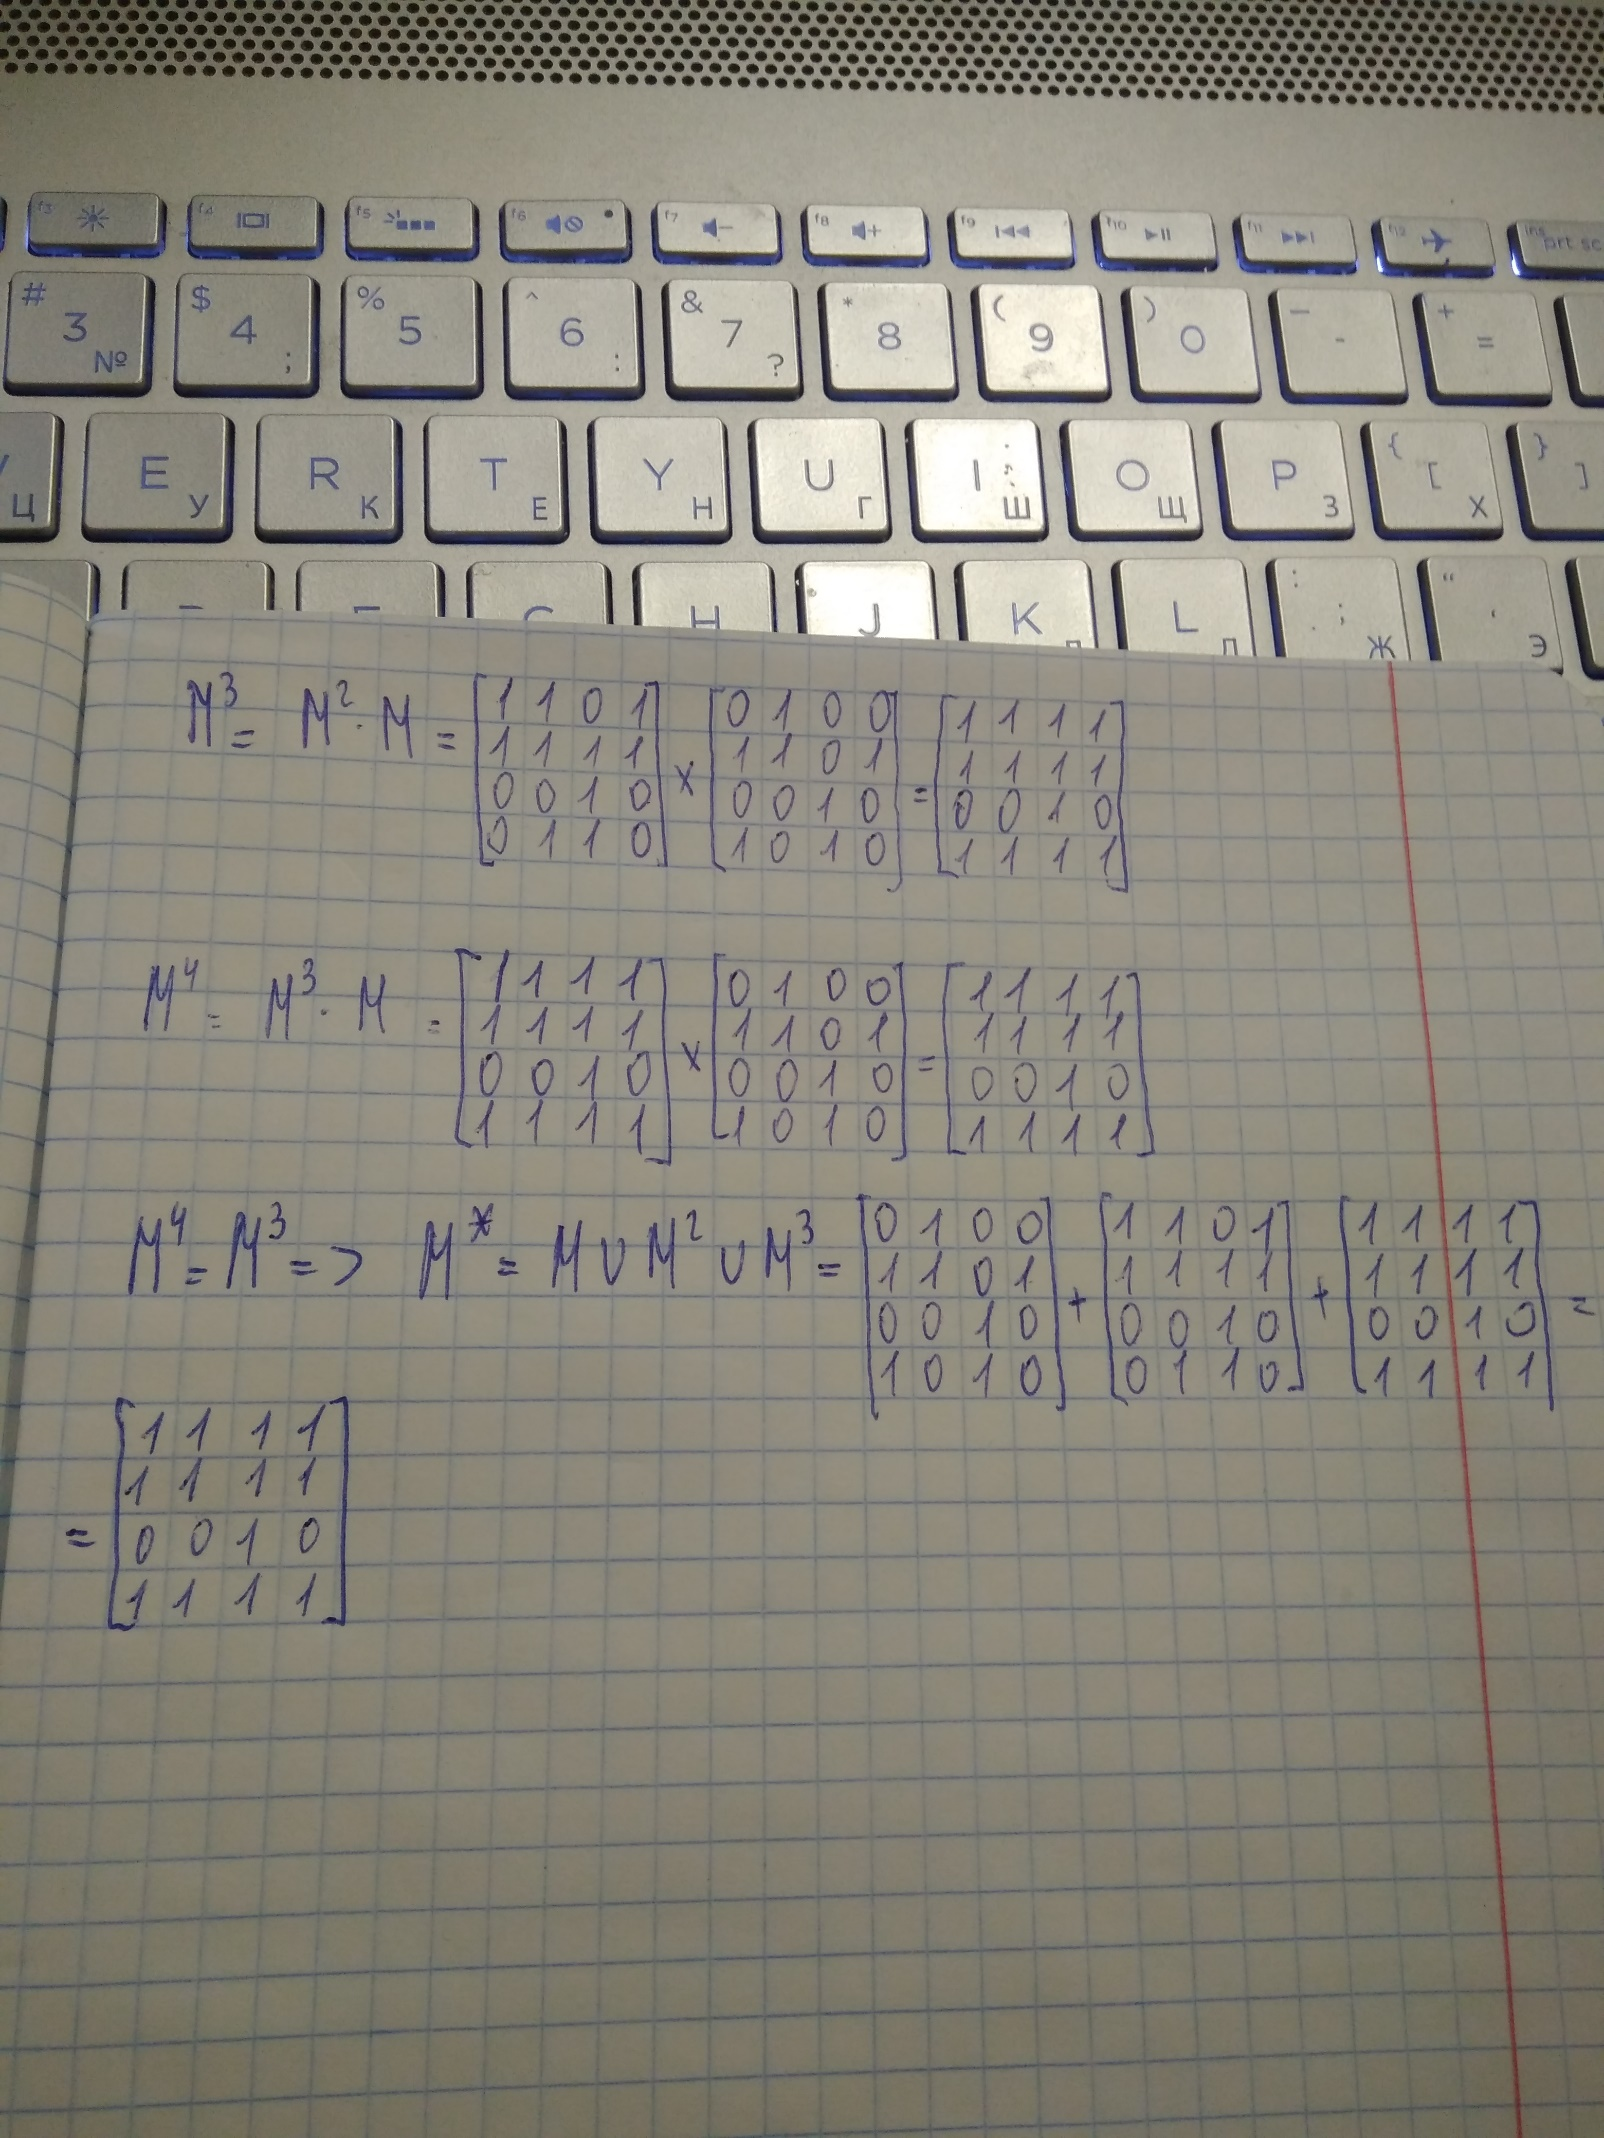 f3 f4 f5 f6 f7 f8 f9 f10 f11 f12 ins prt sc
# 3 № $ 4 ; % 5 ^ 6 : & 7 ? * 8 ( 9 ) 0 – - + =
Ц E У R К T Е Y Н U Г I Ш O Щ P З { [ Х } ]
H J K L : ; Ж “ ‘ Э
M³ = M² · M = [1 1 0 1 / 1 1 1 1 / 0 0 1 0 / 0 1 1 0] × [0 1 0 0 / 1 1 0 1 / 0 0 1 0 / 1 0 1 0] = [1 1 1 1 / 1 1 1 1 / 0 0 1 0 / 1 1 1 1]
M⁴ = M³ · M = [1 1 1 1 / 1 1 1 1 / 0 0 1 0 / 1 1 1 1] × [0 1 0 0 / 1 1 0 1 / 0 0 1 0 / 1 0 1 0] = [1 1 1 1 / 1 1 1 1 / 0 0 1 0 / 1 1 1 1]
M⁴ = M³ => M* = M ∪ M² ∪ M³ = [0 1 0 0 / 1 1 0 1 / 0 0 1 0 / 1 0 1 0] + [1 1 0 1 / 1 1 1 1 / 0 0 1 0 / 0 1 1 0] + [1 1 1 1 / 1 1 1 1 / 0 0 1 0 / 1 1 1 1] =
= [1 1 1 1 / 1 1 1 1 / 0 0 1 0 / 1 1 1 1]